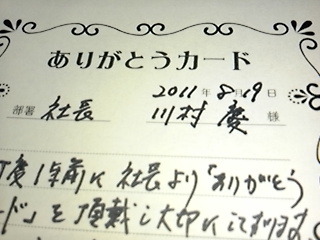 ありがとうカード
2011年8月19日
部署 社長 川村 慶 様
丁度1年前に社長より「ありがとう
ード」を頂戴し大切にしております